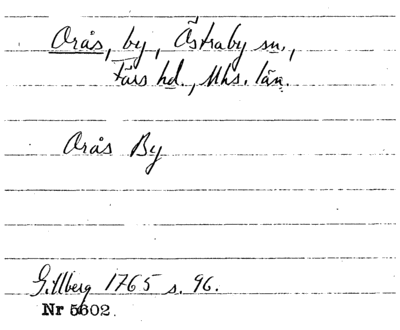 Orås, by, Östraby sn.,
Färs hd., Mhs. län.
Orås By
Gillberg 1765 s. 96.
Nr 5602.